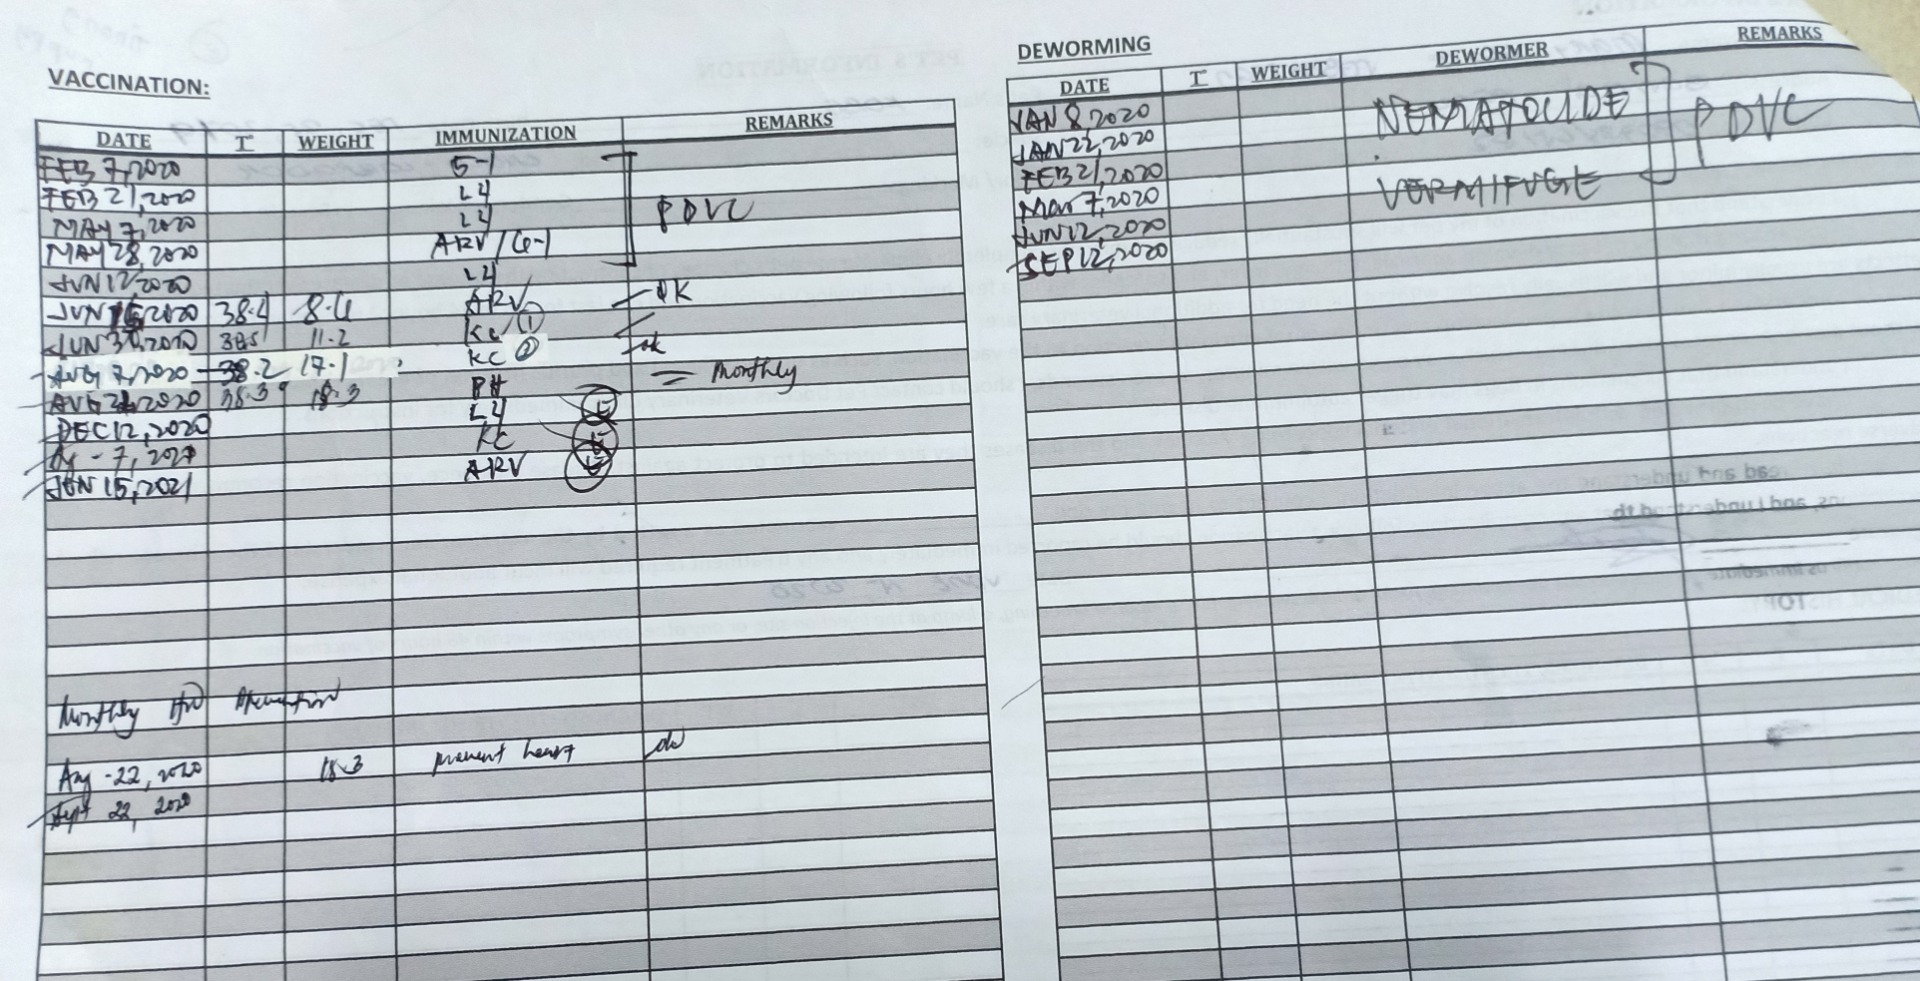 VACCINATION:
DATE T WEIGHT IMMUNIZATION REMARKS
FEB 7, 2020 5-1
FEB 21, 2020 L4
MAY 7, 2020 L4 PDVC
MAY 28, 2020 ARV / 6-1
JUN 12 2020 L4
JUN 2020 38.4 8.6 ARV OK
JUN 30, 2020 38.5 11.2 KC / 1 ok
AUG 7, 2020 38.2 17.1 KC 2
AUG 2020 38.3° 18.3 = Monthly
DEC 12, 2020 L4
7, 2021 KC
JUN 15, 2021 ARV
Monthly HW Prevention
Aug - 22, 2020 18.3 prevent heart
Sept 22, 2020
DEWORMING
DATE T WEIGHT DEWORMER REMARKS
JAN 8, 2020 NEMATOCIDE PDVC
JAN 22, 2020
FEB 21, 2020 VERMIFUGE
Mar 7, 2020
JUN 12, 2020
SEP 12, 2020